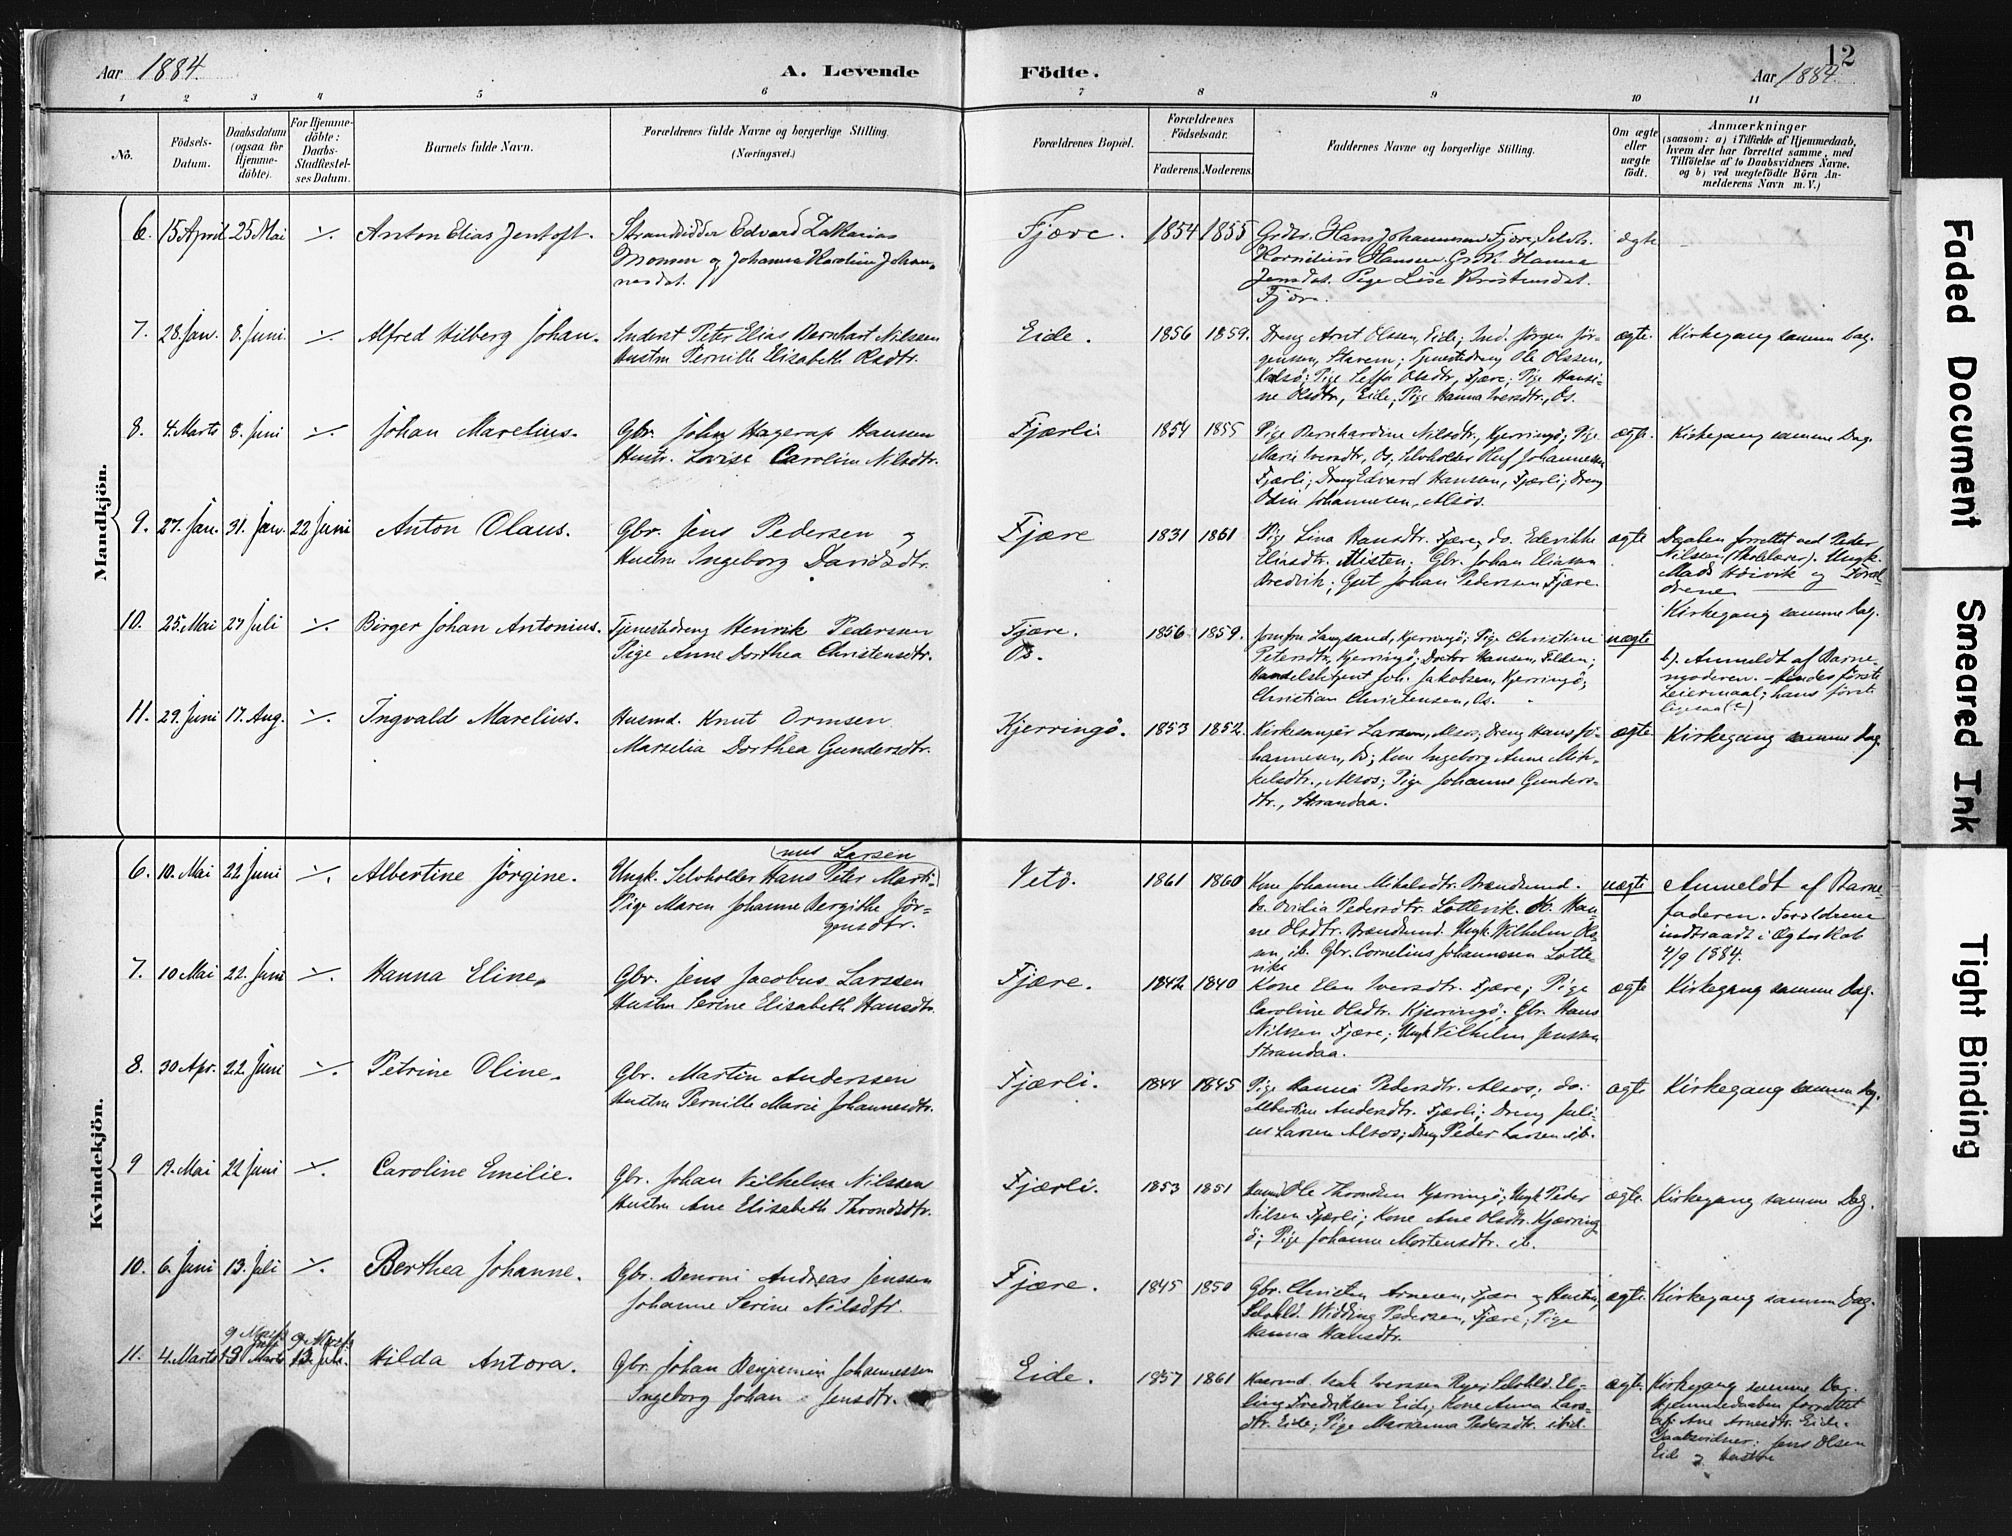 Aar 1884.
A. Levende
Födte.
12
Aar 1884.
1 2 3 4 5 6 7 8 9 10 11
No.
Födsels-
Datum.
Daabsdatum
(ogsaa for
Hjemme-
döbte).
For Hjemme-
döbte:
Daabs-
Stadfæstel-
ses Datum.
Barnets fulde Navn.
Forældrenes fulde Navne og borgerlige Stilling.
(Næringsvei.)
Forældrenes Bopæl.
Forældrenes
Födselsaar.
Faderens. Moderens.
Faddernes Navne og borgerlige Stilling.
Om ægte
eller
uægte
födt.
Anmærkninger
(saasom: a) i Tilfælde af Hjemmedaab,
hvem der har forrettet samme, med
Tilföielse af to Daabsvidners Navne,
og b) ved uægtefödte Börn An-
melderens Navn m. V.)
Mandkjön.
6. 15 April 25 Mai ./. Anton Elias Jentoft.
Strandsidder Edvard Zakarias
Monsen og Johanna Karoline Johan-
nesdat.
Fjære. 1854 1855
Grdbr. Hans Johannesen Fjære, Selvh.
Kornelius Hansen. Grdk. Hanna
Jensdat. Pige Lise Kristensdat.
Fjære.
ægte
7. 28 Jan. 8. Juni ./. Alfred Hilberg Johan.
Inderst Peter Elias Bernhart Nilssen
Hustru Pernille Elisabeth Olsdtr.
Eide. 1856 1859.
Dreng Arnt Olssen, Eide; Ind. Jörgen Jör-
gensen, Starem; Tjenestedreng Ole Olssen,
Pige Olsdtr, Fjære; Pige Hansi-
ne Olsdtr, Eide; Pige Hanna Iversdtr, Os.
ægte. Kirkegang samme Dag.
8. 4. Marts 8. Juni ./. Johan Marelius.
Gbr. John Hagerup Hansen
Hustr. Lovise Caroline Nilsdtr.
Fjærli 1854 1855
Pige Bernhardine Nilsdtr, Kjerringö; Pige
Marie Iversdtr, Os, Selvholder Oluf Johannesen
Fjærli; Dreng Edvard Hansen, Fjærli; Dreng
Odin Johannesen, Alsos.
ægte. Kirkegang samme Dag.
9. 27. Jan. 31. Jan. 22 Juni Anton Olaus.
Gbr. Jens Pedersen og
Hustru Ingeborg Davidsdtr.
Fjære 1831 1861
Pige Lina Hansdtr. Fjære, do. Edevikke
Eliasdtr. Misten; Gbr. Johan Eliassen
Bredvik; Gut Johan Pedersen Fjære.
ægte
Daaben forrettet ved Peder
Nilsen (Skolelærer). Ungk.
Mads Hoivik og Foræl-
drene
Kirkegang samme Dag.
10. 25. Mai 27 Juli ./. Birger Johan Antonius.
Tjenestedreng Henrik Pedersen
Pige Anne Dorthea Christensdtr.
Fjære.
Os.
1856. 1859.
Jomfru Langsand, Kjerringö; Pige Christine
Petersdtr, Kjerringö; Doctor Hansen, Folden;
Joh. Jakobsen, Kjerringö;
Christian Christensen, Os.
uægte
b). Anmeldt af Barne-
moderen. Hendes förste
Leiermaal; hans först
ligesaa (?)
11. 29. Juni 17. Aug. ./. Ingvald Marelius.
Husmd. Knut Ormsen.
Marselia Dorthea Gundersdtr.
Kjerringö. 1853 1852.
Kirkesanger Larsen, Alsos; Dreng Hans Jo-
hannesen, Os; Kone Ingeborg Anne Mik-
kelsdtr., Alsos; Pige Johanna Gunders-
dtr., Strandaa.
ægte Kirkegang samme Dag.
Kvindekjön.
6. 10. Mai 22 Juni ./. Albertine Jörgine.
Larsen
Ungk. Selvholder Hans Peter
Pige Maren Johanne Bergithe Jör-
gensdtr.
1861 1860
Kone Johanne Mikalsdtr. Brændsund.
do. Ovidia Pedersdtr. Lottevik. do. Han-
ne Olsdtr. Brændsund. Ungk. Vilhelm Ols-
sen, ib. Gbr. Cornelius Johannesen Lotte-
vik
uægte
Anmeldt af Barne-
faderen. Forældrene
indtraadt i Ægteskab
4/9 1884.
7. 10 Mai 22. Juni ./. Hanna Eline.
Gbr. Jens Jacobus Larssen
Hustru Serine Elisabeth Hansdtr.
Fjære. 1842 1840
Kone Elen Iversdtr. Fjære; Pige
Caroline Olsdtr. Kjerringö; Gbr. Hans
Nilssen Fjære; Ungk Vilhelm Jenssen
Strandaa.
ægte Kirkegang samme Dag.
8. 30 Apr. 22. Juni ./. Petrine Oline.
Gbr. Martin Anderssen
Hustru Pernille Marie Johannesdtr.
Fjærli. 1844 1845
Pige Hanna Pedersdtr. Alsos; do.
Albertine Andersdtr. Fjærli; Dreng Juli-
us Larsen Alsos; Dreng Peder Larsen ib.
ægte Kirkegang samme Dag.
9 19. Mai 22 Juni ./. Caroline Emilie.
Gbr. Johan Vilhelm Nilssen
Hustru Ane Elisabeth Throndsdtr.
Fjærli. 1853 1851
Ole Throndsen Kjerringö; Ungk Peder
Nilsen Fjærli; Kone Ane Olsdtr. Kjerring
ö; Pige Johanne Mortensdtr. ib.
ægte. Kirkegang samme Dag.
10. 6. Juni 13. Juli ./. Berthea Johanne.
Gbr. Benoni Andreas Jenssen
Johanne Serine Nilsdtr.
Fjære. 1845 1850
Gbr. Christen Arnesen, Fjære og Hustru,
Selvhld. Widding Pedersen, Fjære; Pige
Hanna Hansdtr.
ægte. Kirkegang samme Dag.
11. 4. Marts 9 Marts 13. Juli. Hilda Antora.
Gbr. Johan Benjemin Johannessen
Ingeborg Johan Jensdtr.
Eide. 1857 1861
Iverssen Selvhld. El-
ling Fredriksen Eide; Kone Anna Lars-
dtr. Eide; Pige Marianna Pedersdtr. ibid.
ægte.
Kirkegang samme Dag.
Hjemmedaaben forrettet
af: Ane Arnesdtr. Eide.
Daabsvidner: Jens Olsen
Eide og Hustru
Faded Document
Smeared Ink
Tight Binding